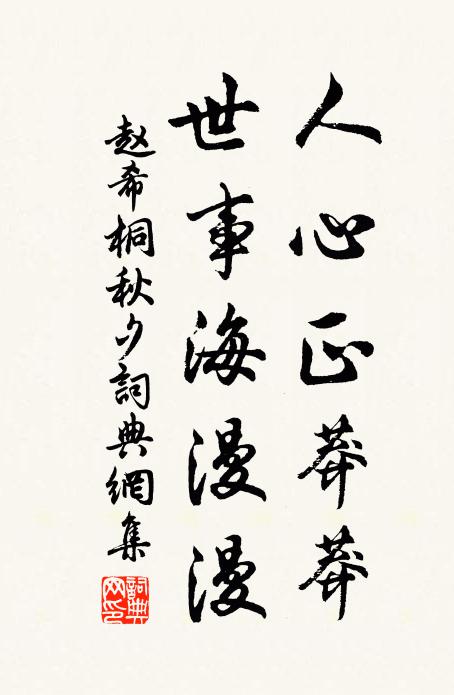 人心正莽莽
世事海漫漫
赵希桐秋夕詞典網集
詞典
网印